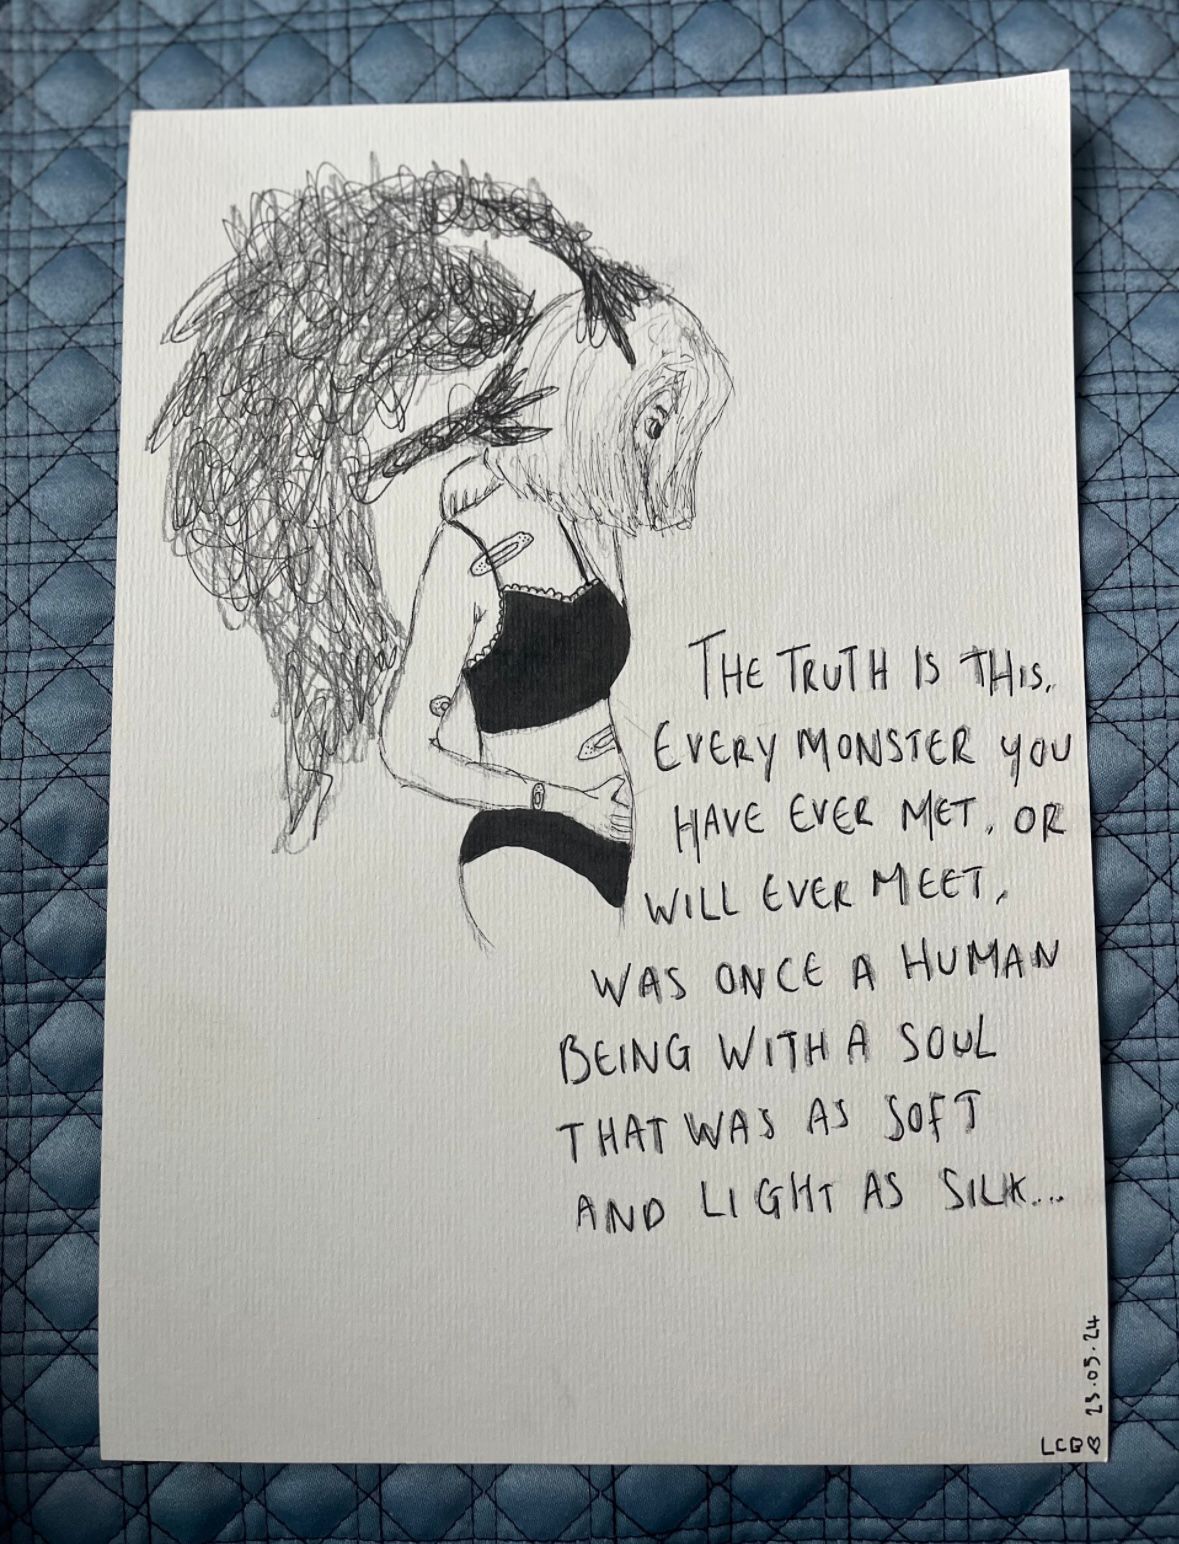 THE TRUTH IS THIS.
EVERY MONSTER YOU
HAVE EVER MET, OR
WILL EVER MEET,
WAS ONCE A HUMAN
BEING WITH A SOUL
THAT WAS AS SOFT
AND LIGHT AS SILK...
LCB♡ 23.05.24